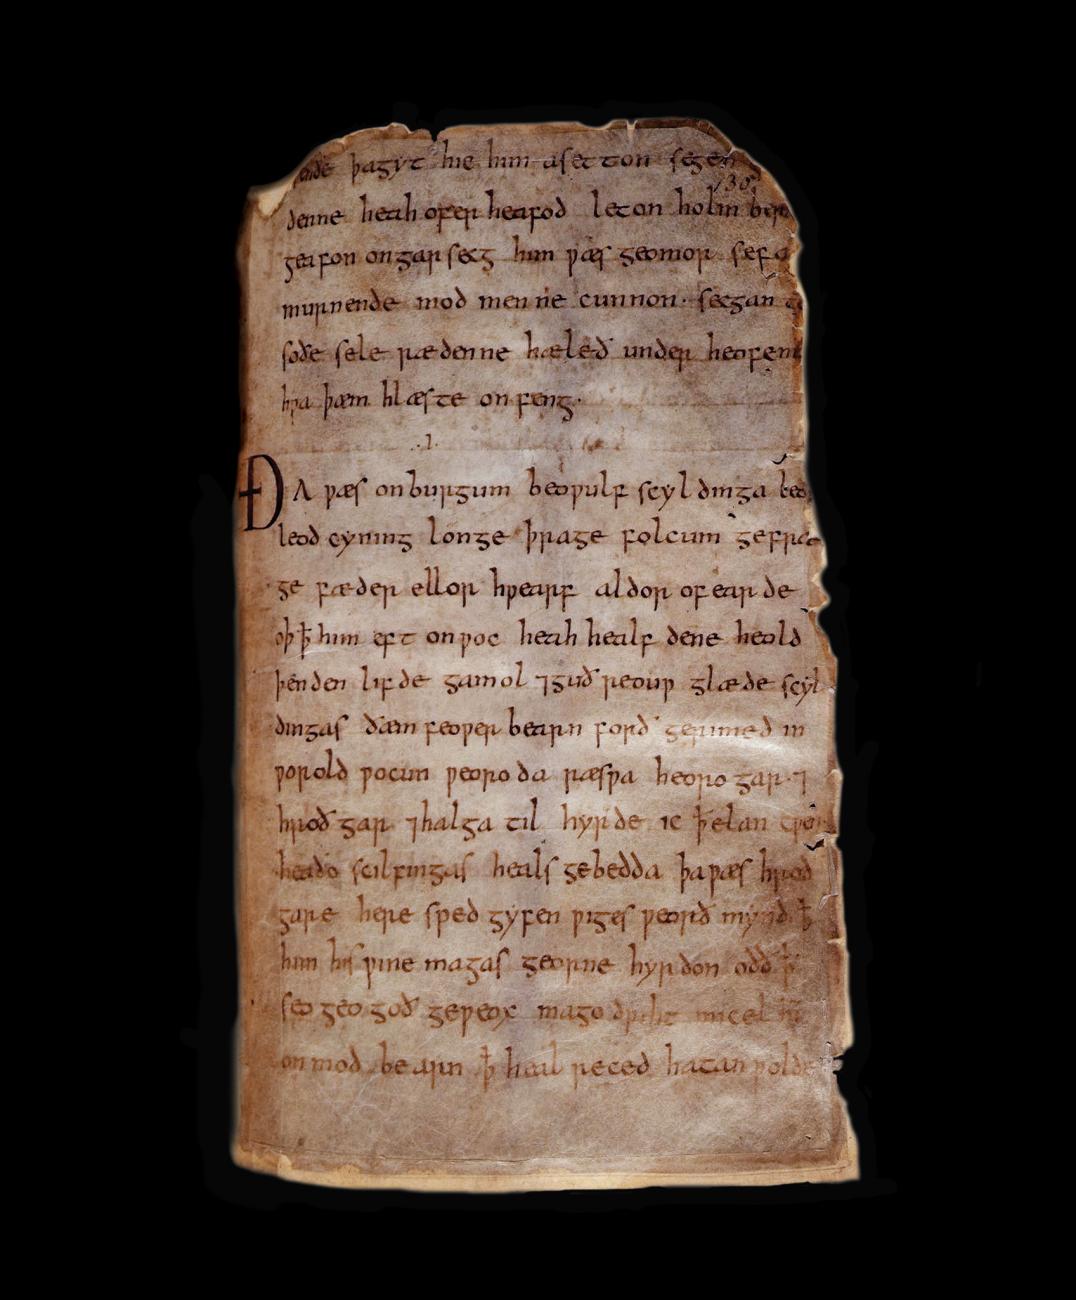 ende þagyt hie him asetton segen
130
denne heah ofer heafod leton holm ber
geafon ongarsecg him ƿæs geomor sefa
murnende mod men ne cunnon· secgan
soðe sele rædenne hæleð under heofenu
hƿa þæm hlæste onfeng·
·I·
ÐA ƿæs onburgum beoƿulf scyldinga leo
leod cyning longe þrage folcum gefræ
ge fæder ellor hƿearf aldor ofearde
oþ ꝥ him eft onƿoc heah healf dene heold
þenden lifde gamol ⁊guð reouƿ glæde scyl
dingas ðæm feoƿer bearn forð gerimed in
ƿorold ƿocun ƿeoroda ræsƿa heorogar· ⁊
hroð gar ⁊halga til hyrde ic ꝥ elan cƿen
heaðo scilfingas heals gebedda þa ƿæs hroð
gare here sped gyfen ƿiges ƿeorð mynd ꝥ
him his ƿine magas georne hyrdon oðð ꝥ
seo geogoð geƿeox mago driht micel hī
onmod bearn ꝥ heal reced hatan ƿolde